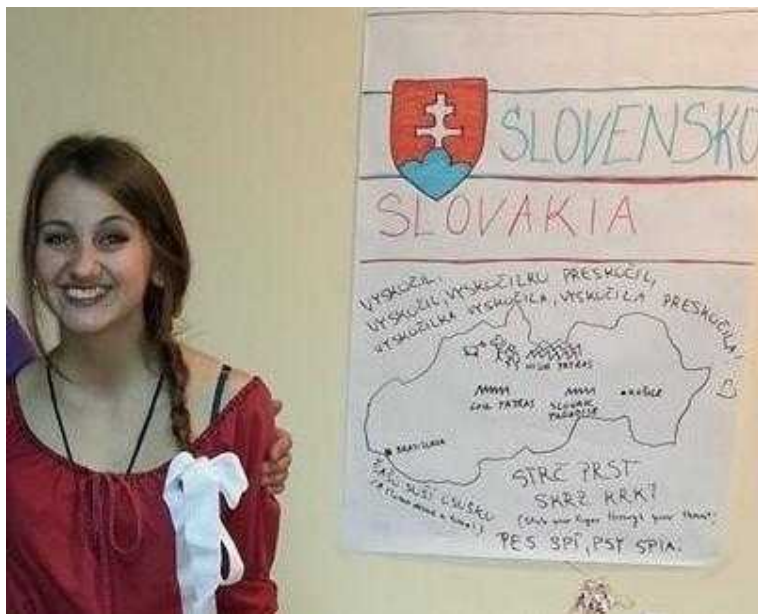 SLOVENSKO
SLOVAKIA
VYSKOČILI,
VYSKOČIL, VYSKOČILKU PRESKOČIL,
VYSKOČILKA VYSKOČILA, VYSKOČILA PRESKOČILA!
HIGH TATRAS
LOW TATRAS
SLOVAK
PARADISE
KOŠICE
BRATISLAVA
STRČ PRST
SKRZ KRK?
(Stick your finger through your throat)
PES SPÍ, PSY SPIA.